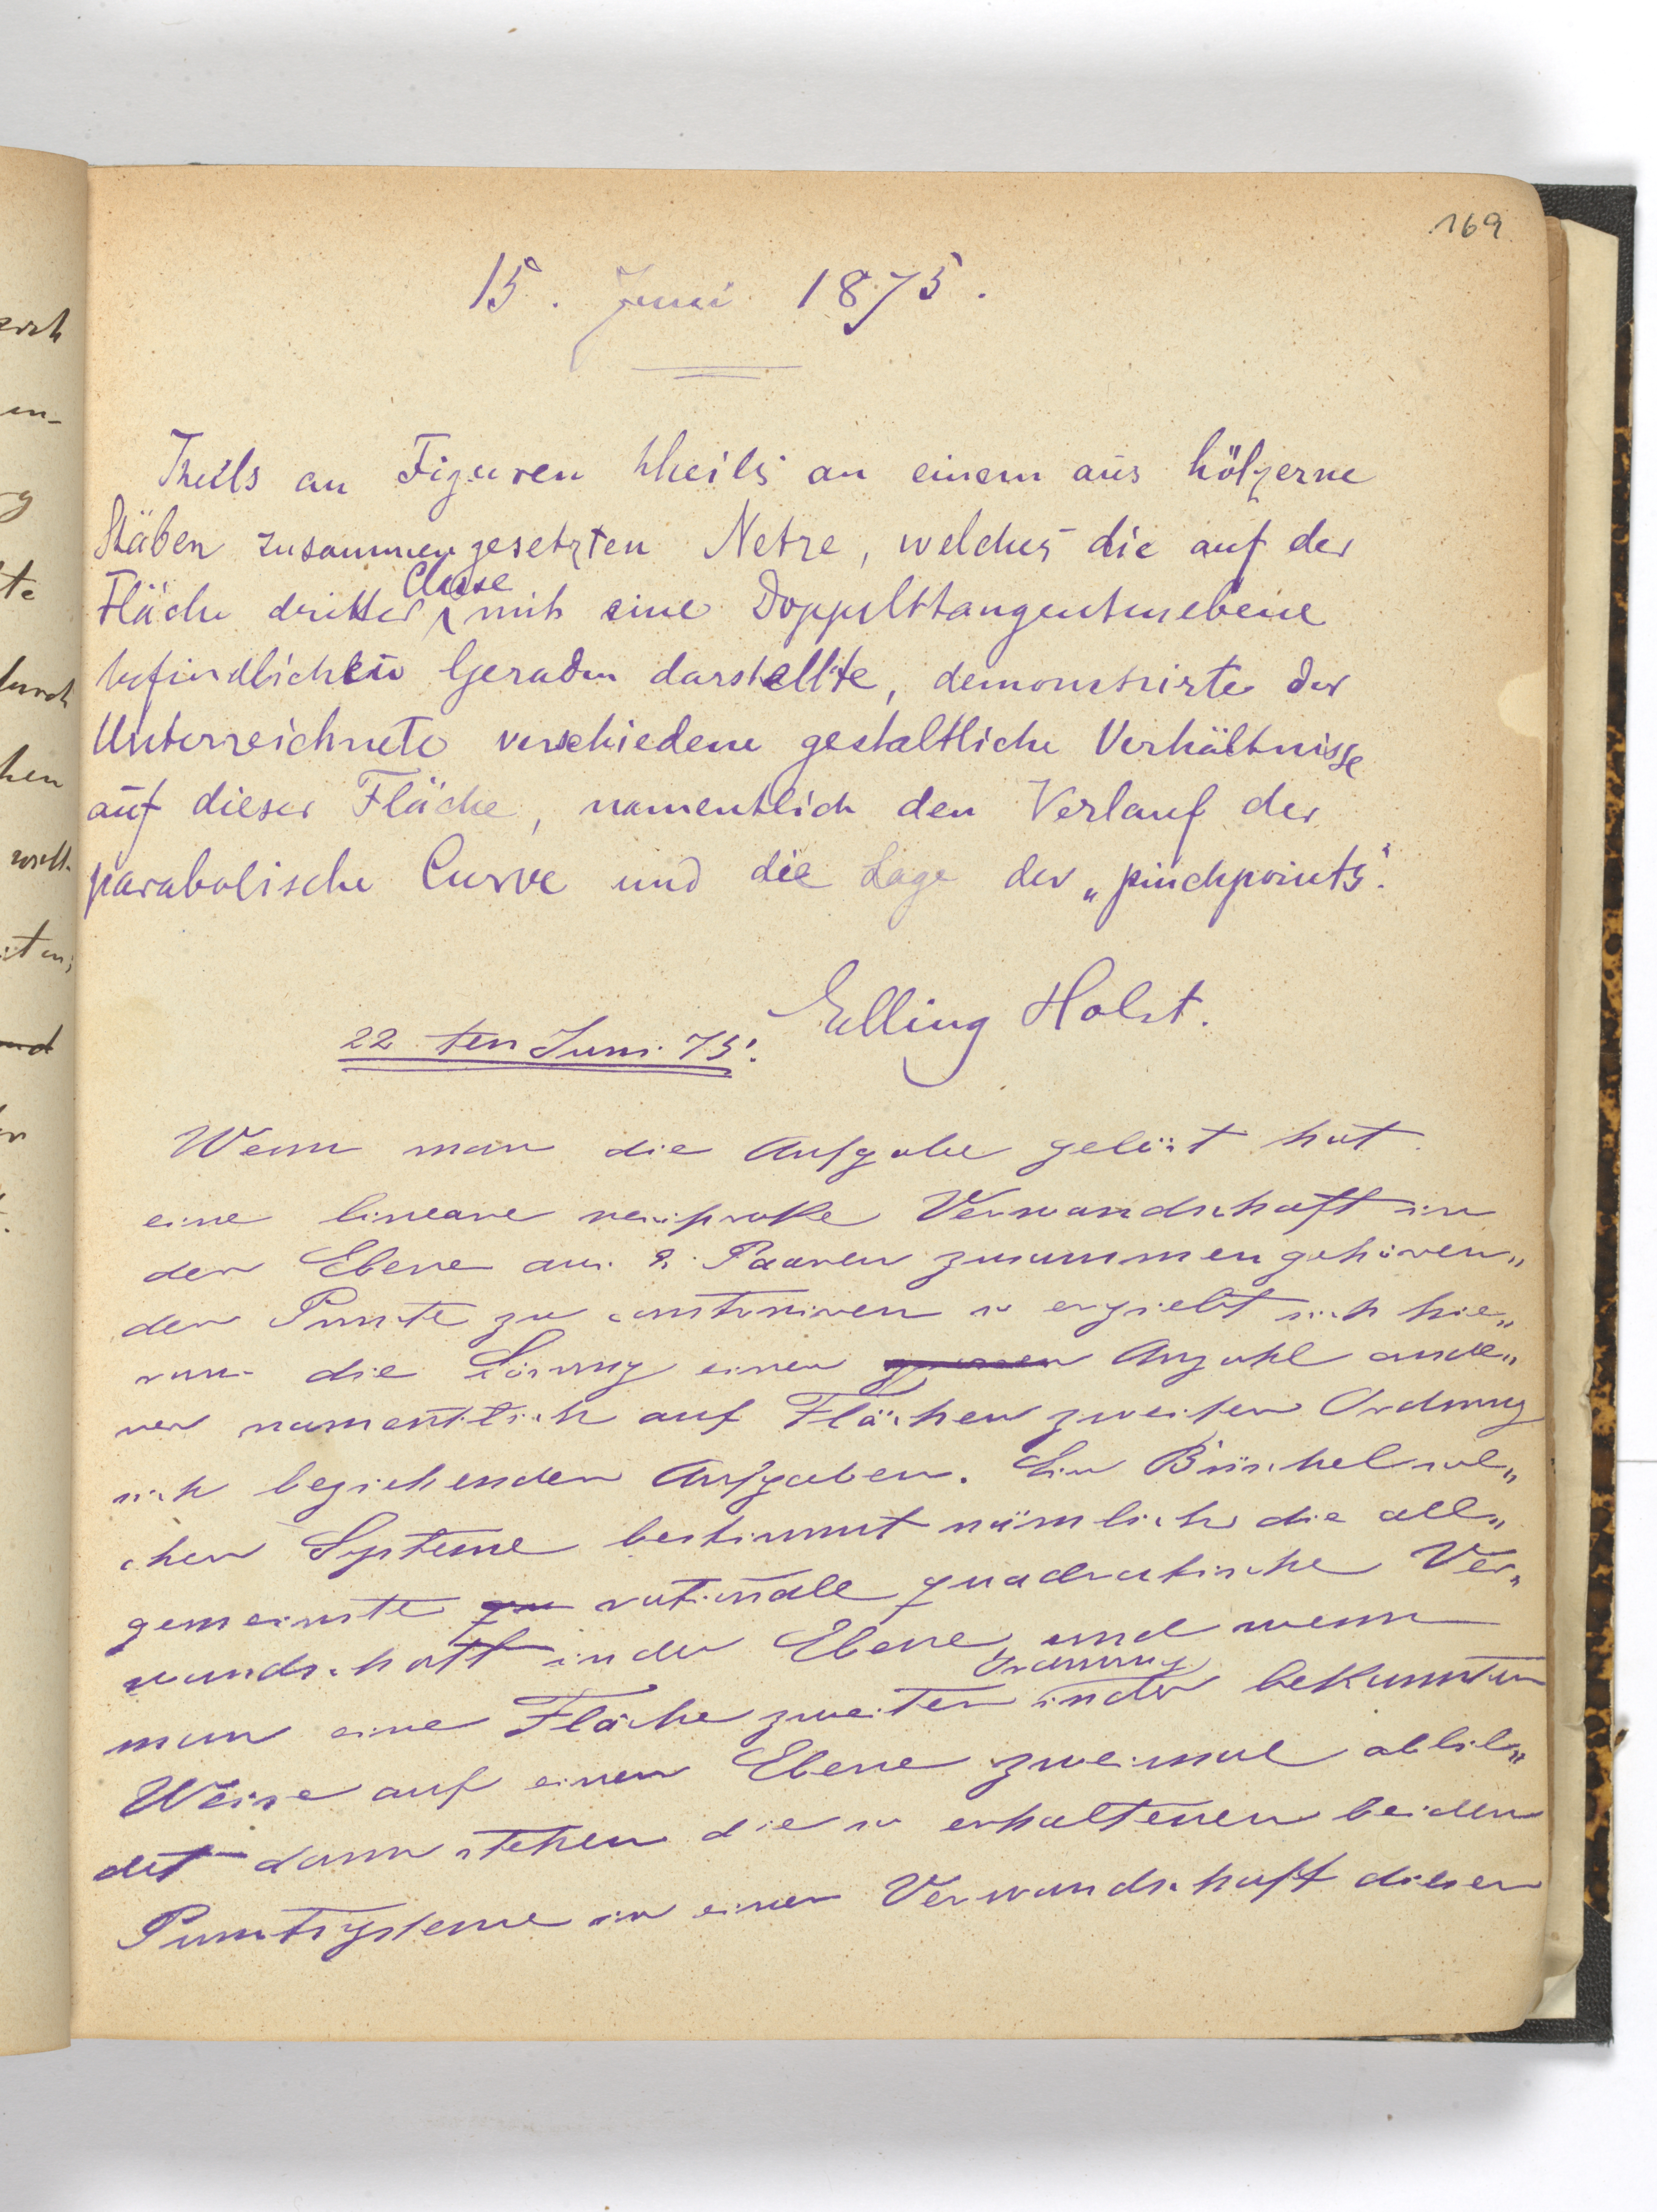 169
15. Juni 1875.
Theils an Figuren theils an einem aus hölzerne
Stäben zusammengesetzten Netze, welches die auf der
Classe
Fläche dritter mit eine Doppelttangentenebene
befindlichen Geraden darstellte, demonstrirte der
Unterzeichnete verschiedene gestaltliche Verhältnisse
auf dieser Fläche, namentlich den Verlauf der
parabolische Curve und die Lage der „pinchpoints".
Elling Holst.
22 ten Juni 75.
Wenn man die Aufgabe gelöst hat
eine lineare reciproke Verwandschaft in
der Ebene aus 8 Paaren zusammengehören„
der Puncte zu construiren so ergiebt sich hie„
raus die Lösung einer Anzahl ande„
rer namentlich auf Flächen zweiter Ordnung
sich beziehender Aufgaben. Ein Büschel sol„
cher Systeme bestimmt nämlich die all„
gemeinste rationale quadratische Ver„
wandschaft in der Ebene und wenn
Ordnung
man eine Fläche zweiter in der bekannten
Weise auf einer Ebene zweimal abbil„
det dann stehen die so erhaltenen beiden
Punctsysteme in einer Verwandschaft dieser